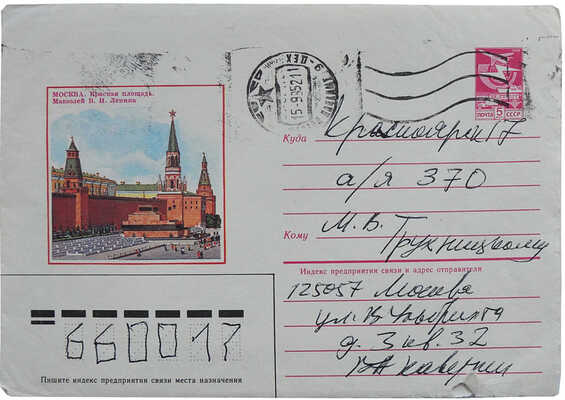 МОСКВА. Красная площадь.
Мавзолей В. И. Ленина
ПОЧТА 5 СССР
Куда Красноярск 17
а/я 370
М. В.
Кому Трухницкому
Индекс предприятия связи и адрес отправителя
125057 Москва
ул.
д. 3 кв. 32
660017
Пишите индекс предприятия связи места назначения